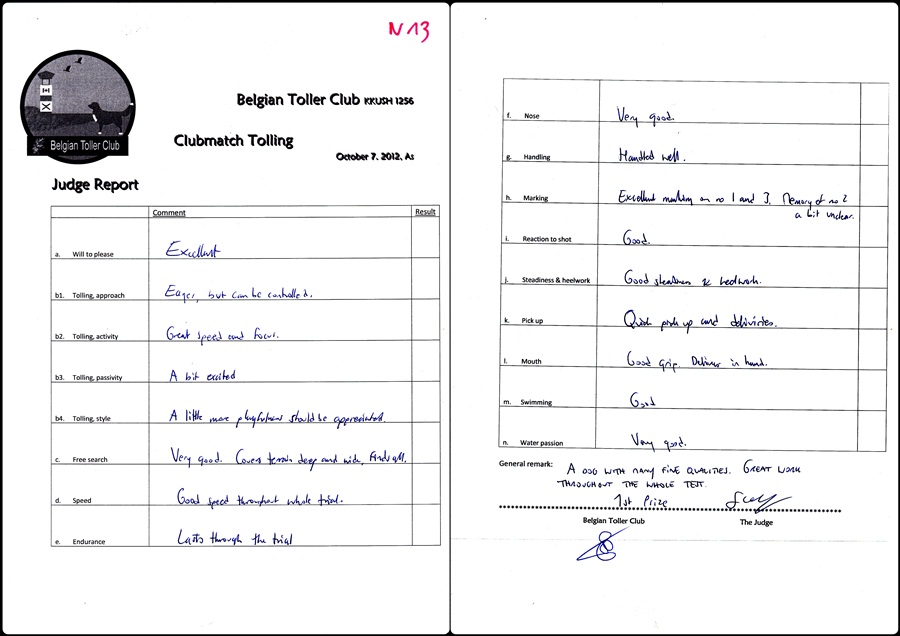 N 13
Belgian Toller Club
Belgian Toller Club KKUSH 1256
Clubmatch Tolling
October 7, 2012, As
Judge Report
Comment Result
a. Will to please Excellent
b1. Tolling, approach Eager, but can be controlled.
b2. Tolling, activity Great speed and focus.
b3. Tolling, passivity A bit excited
b4. Tolling, style A little more playfulness should be appreciated.
c. Free search Very good. Covers terrain deep and wide. Finds all.
d. Speed Good speed throughout whole trial.
e. Endurance Lasts through the trial
f. Nose Very good.
g. Handling Handled well.
h. Marking Excellent marking on no 1 and 3. Memory of no 2
a bit unclear.
i. Reaction to shot Good.
j. Steadiness & heelwork Good steadiness & heelwork.
k. Pick up Quick pick up and deliveries.
l. Mouth Good grip. Deliver in hand.
m. Swimming Good
n. Water passion Very good.
General remark: A DOG WITH MANY FINE QUALITIES. GREAT WORK
THROUGHOUT THE WHOLE TEST.
1st Prize
Belgian Toller Club The Judge